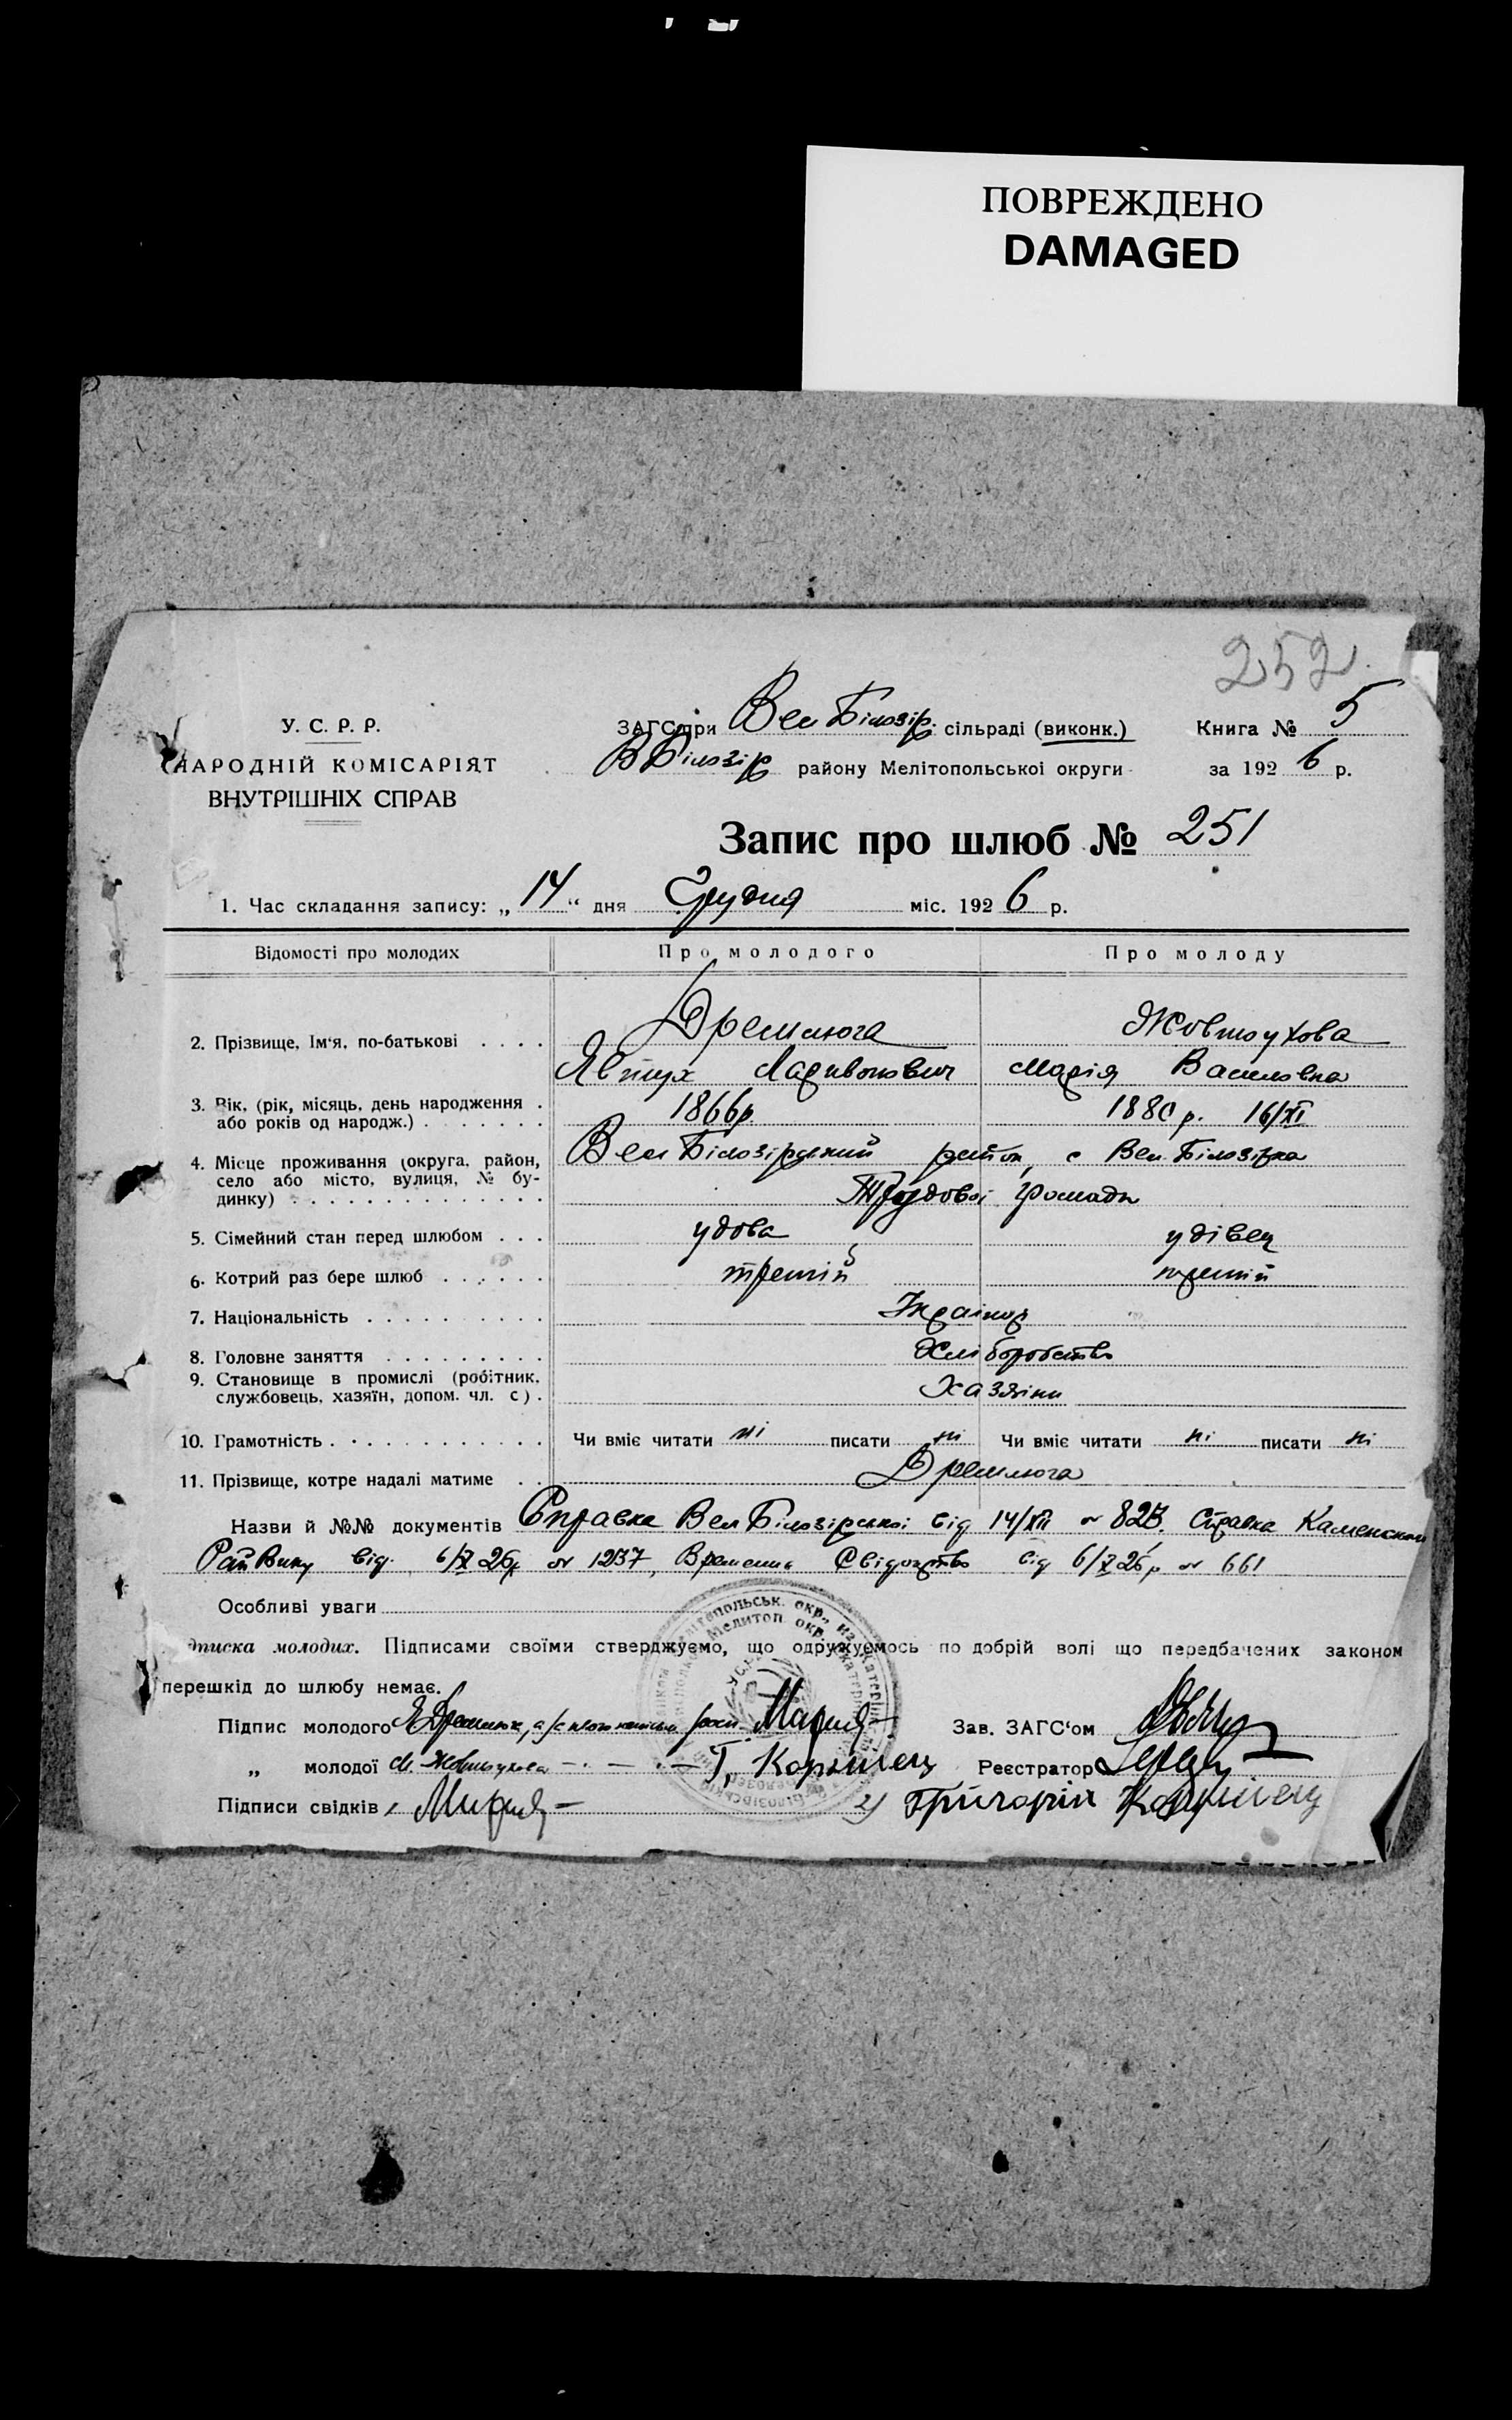 ПОВРЕЖДЕНО
DAMAGED
252
У. С. Р. Р.
НАРОДНІЙ КОМІСАРІЯТ
ВНУТРІШНІХ СПРАВ
ЗАГС при Вел Білозір. сільраді (виконк.)
В Білозір району Мелітопольської округи
Книга № 5
за 1926 р.
Запис про шлюб № 251
1. Час складання запису: „14“ дня Грудня міс. 1926 р.
Відомості про молодих Про молодого Про молоду
2. Прізвище, Ім‘я, по-батькові . . . . Дремлюга Жовтоухова
Явтух Ларивонович Марія Василовна
3. Рік, (рік, місяць, день народження .
або років од народж.) . . . . . . . 1866р. 1880 р. 16/XI
4. Місце проживання (округа, район,
село або місто, вулиця, № бу-
динку) . . . . . . . . . . . . . .
Вел Білозірський район, с Вел. Білозірка
Трудової громади
5. Сімейний стан перед шлюбом . . . удова удівец
6. Котрий раз бере шлюб . . . . . . третій третій
7. Національність . . . . . . . . . .
8. Головне заняття . . . . . . . . . Хліборобство
9. Становище в промислі (робітник,
службовець, хазяїн, допом. чл. с ) . Хазяїни
10. Грамотність . . . . . . . . . . . . Чи вміє читати ні писати ні Чи вміє читати ні писати ні
11. Прізвище, котре надалі матиме . . Дремлюга
Назви й №№ документів Справка Вел Білозірської від 14/XII № 827. Справка Каменского
Рай Вику від 6/X 26р № 1237, Времена Свідоцтво від 6/X 26р № 661
Особливі уваги
дписка молодих. Підписами своїми стверджуємо, що одружуємось по добрій волі що передбачених законом
перешкід до шлюбу немає.
Підпис молодого Я Дремлюг, а за його Зав. ЗАГС‘ом
„ молодої М. Жовтоухова Г. Коржінец Реєстратор
Підписи свідків 1 2) Григорій Коржінец